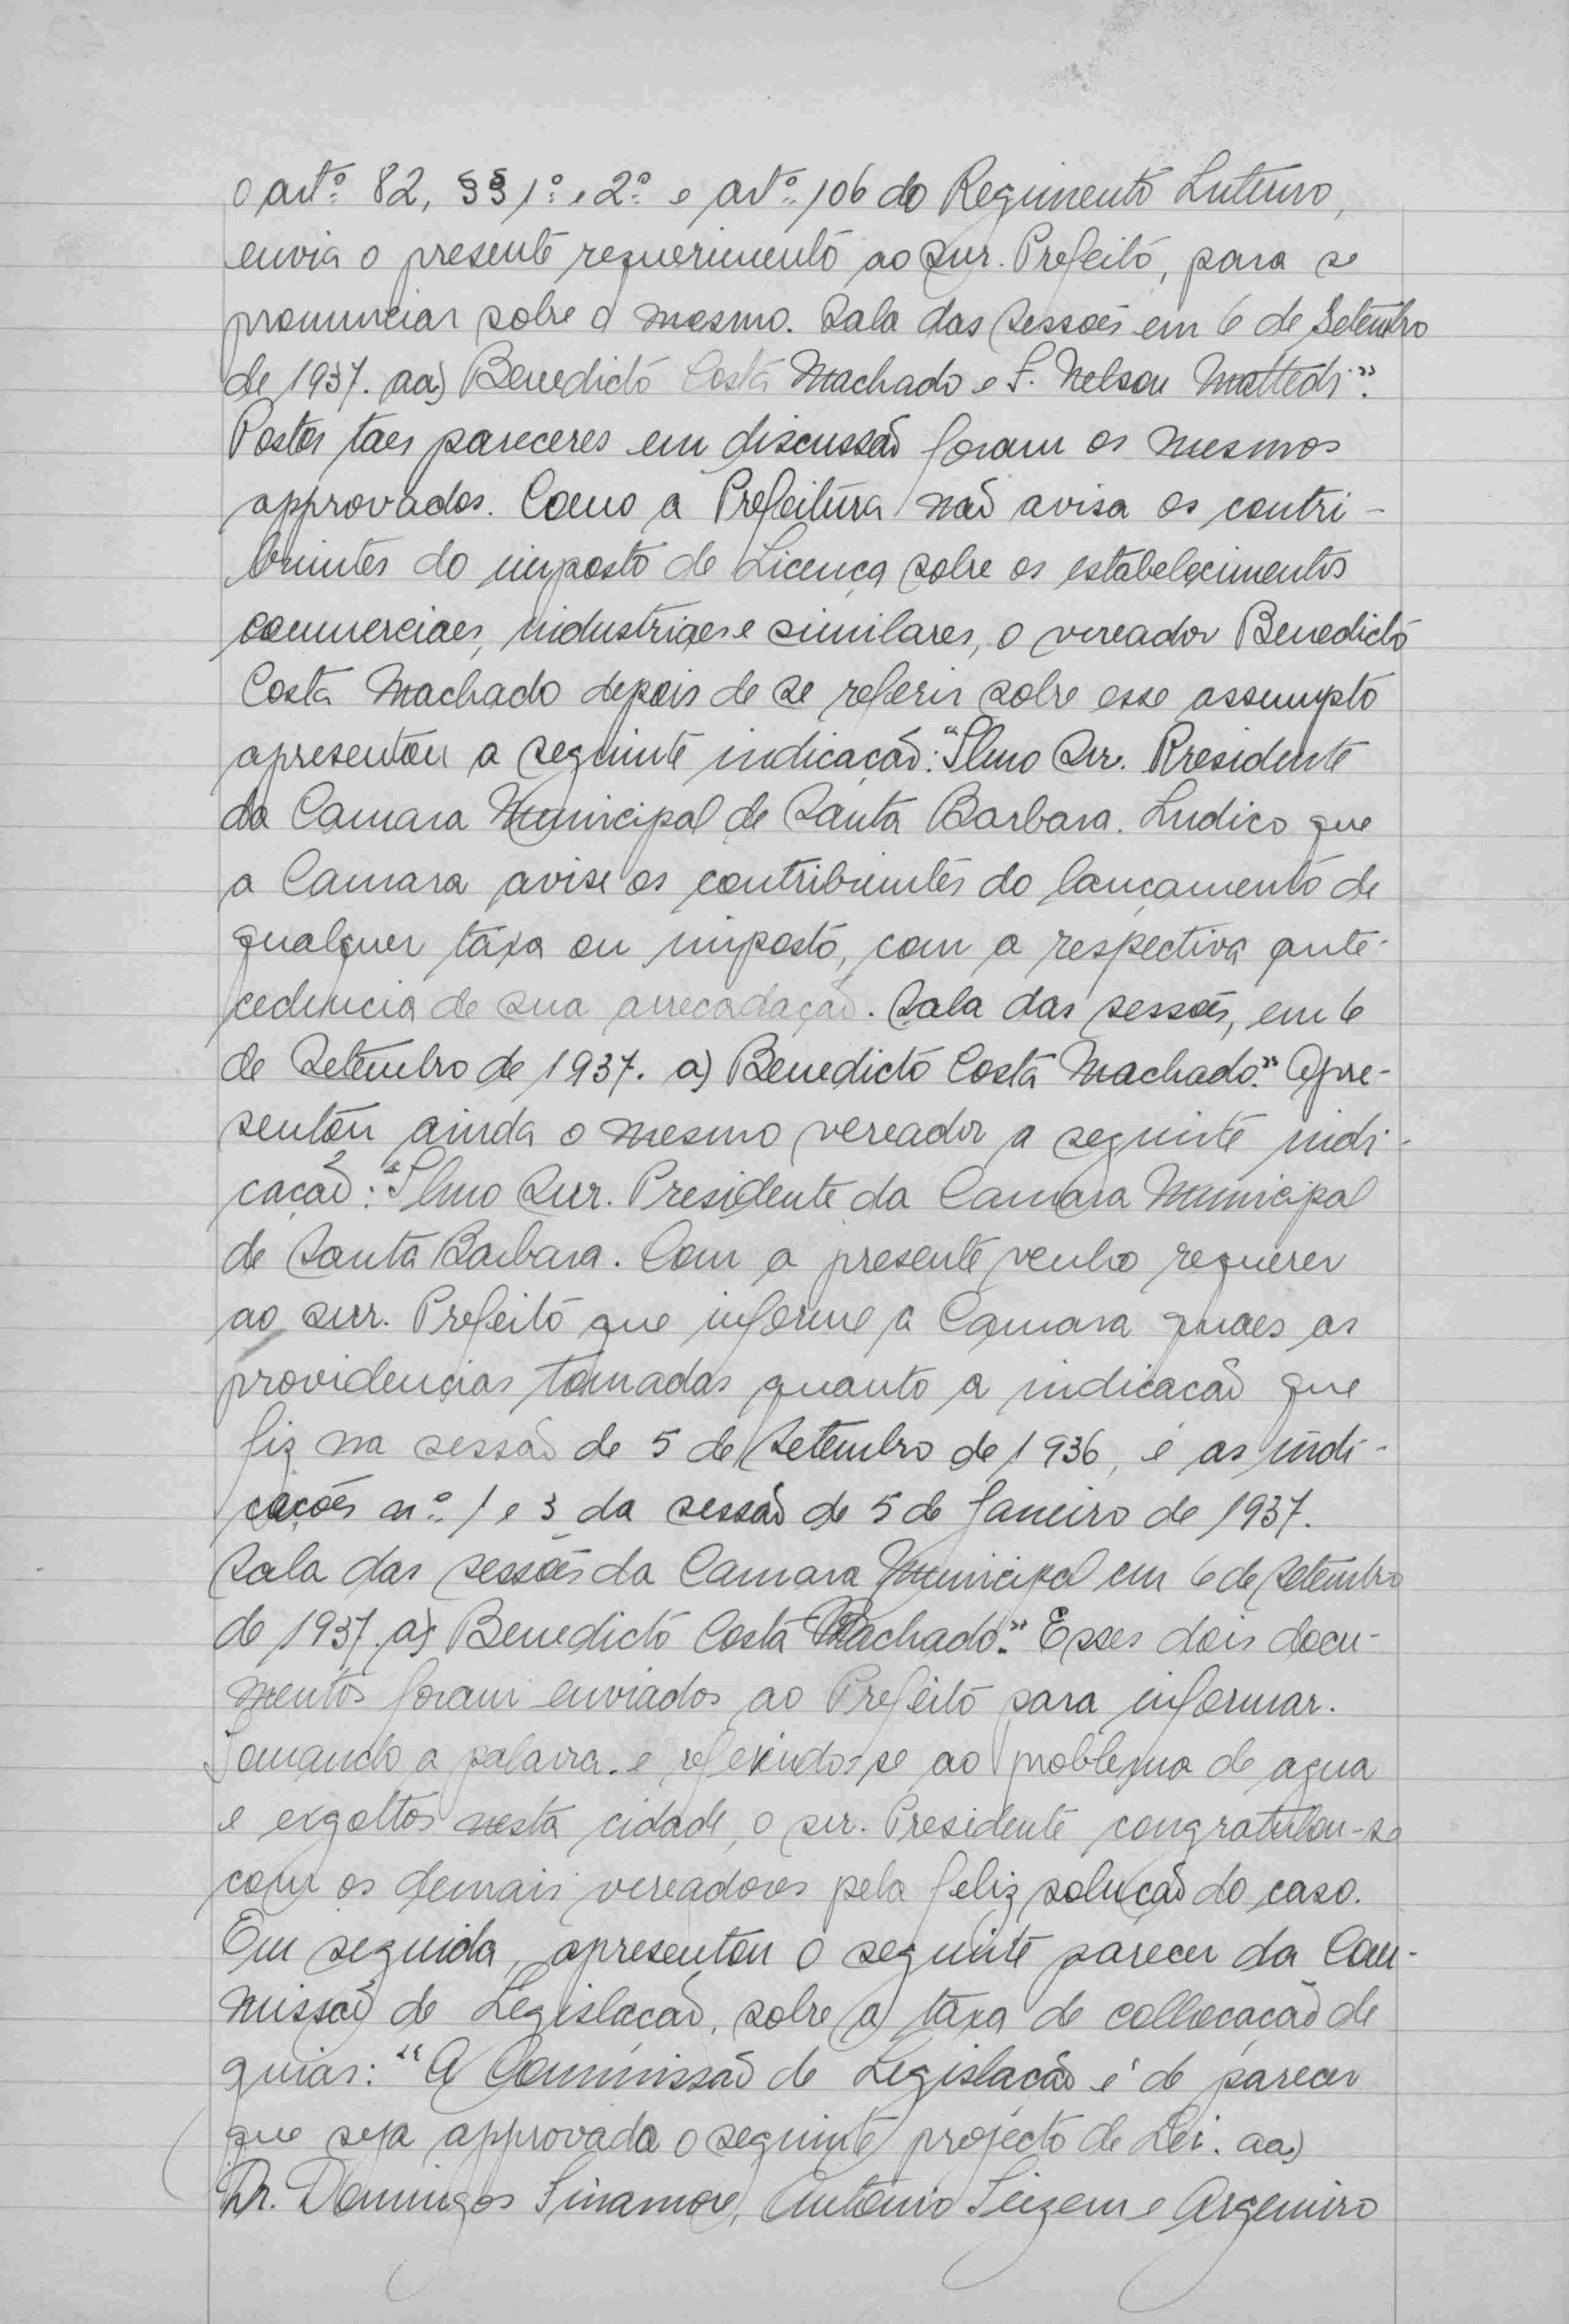 o artº 82, §§ 1º e 2º e artº 106 do Regimento Interno,
envia o presente requerimento ao Snr. Prefeito, para se
pronunciar sobre o mesmo. Sala das Sessões em 6 de Setembro
de 1937. aa) Benedicto Costa Machado e F. Nelson Mattedi".
Postos taes pareceres em discussão foram os mesmos
approvados. Como a Prefeitura não avisa os contri-
buintes do imposto de Licença sobre os estabelecimentos
commerciaes, industriaes e similares, o vereador Benedicto
Costa Machado depois de se referir sobre esse assumpto
apresentou a seguinte indicação: "Ilmo Snr. Presidente
da Camara Municipal de Santa Barbara. Indico que
a Camara avise os contribuintes do lançamento de
qualquer taxa ou imposto, com a respectiva ante-
cedencia de sua arrecadação. Sala das sessões, em 6
de Setembro de 1937. a) Benedicto Costa Machado." Apre-
sentou ainda o mesmo vereador a seguinte indi-
cação: "Ilmo Snr. Presidente da Camara Municipal
de Santa Barbara. Com a presente venho requerer
ao Snr. Prefeito que informe a Camara quaes as
providencias tomadas quanto a indicação que
fiz na sessão de 5 de Setembro de 1936, e as indi-
cações nº 1 e 3 da sessão de 5 de Janeiro de 1937.
Sala das sessões da Camara Municipal em 6 de Setembro
de 1937. a) Benedicto Costa Machado." Esses dois docu-
mentos foram enviados ao Prefeito para informar.
Tomando a palavra e referindo-se ao problema de agua
e exgottos nesta cidade, o snr. Presidente congratulou-se
com os demais vereadores pela feliz solução do caso.
Em seguida, apresentou o seguinte parecer da Com-
missão de Legislação, sobre a taxa de collocação de
guias: "A Commissão de Legislação é de parecer
que seja approvado o seguinte projecto de Lei. aa)
Dr. Domingos Finamore, Antonio Argemiro